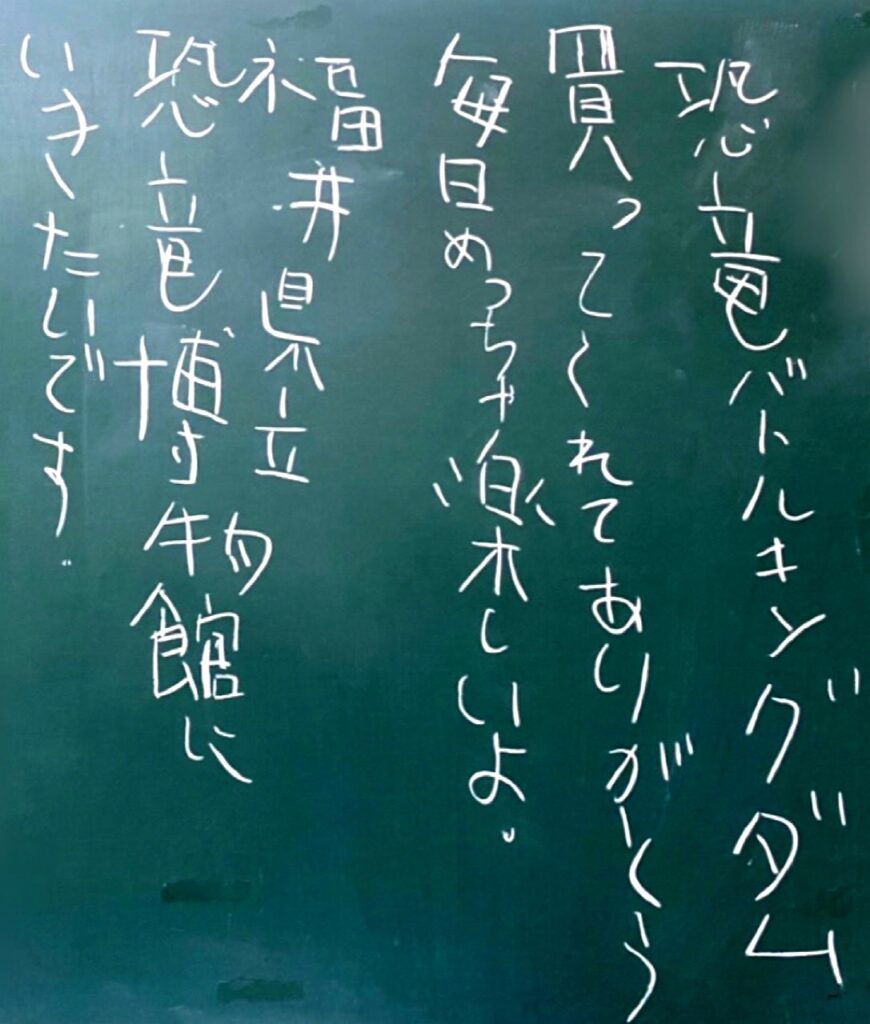 恐竜バトルキングダム
買ってくれてありがとう
毎日めっちゃ楽しいよ。
福井県立
恐竜博物館に
いきたいです。